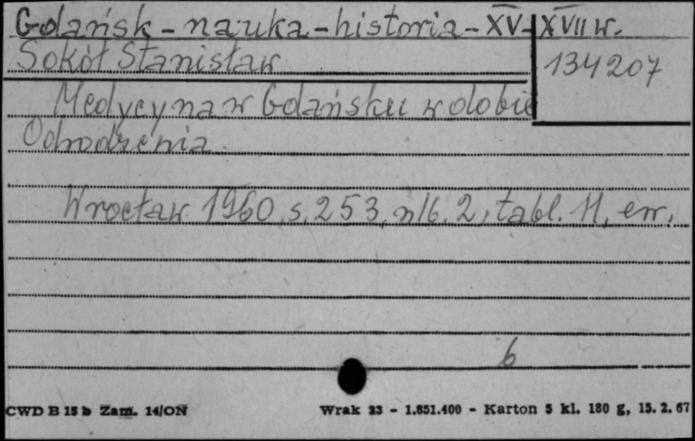 Gdańsk - nauka - historia - XV-XVII w.
Sokół Stanisław
134207
Medycyna w Gdańsku w dobie
Odrodzenia.
Wrocław 1960, s. 253, nlb. 2, tabl. 11, err.
b
CWD B 15 b Zam. 14/ON
Wrak 23 - 1.851.400 - Karton 5 kl. 180 g, 15. 2. 67